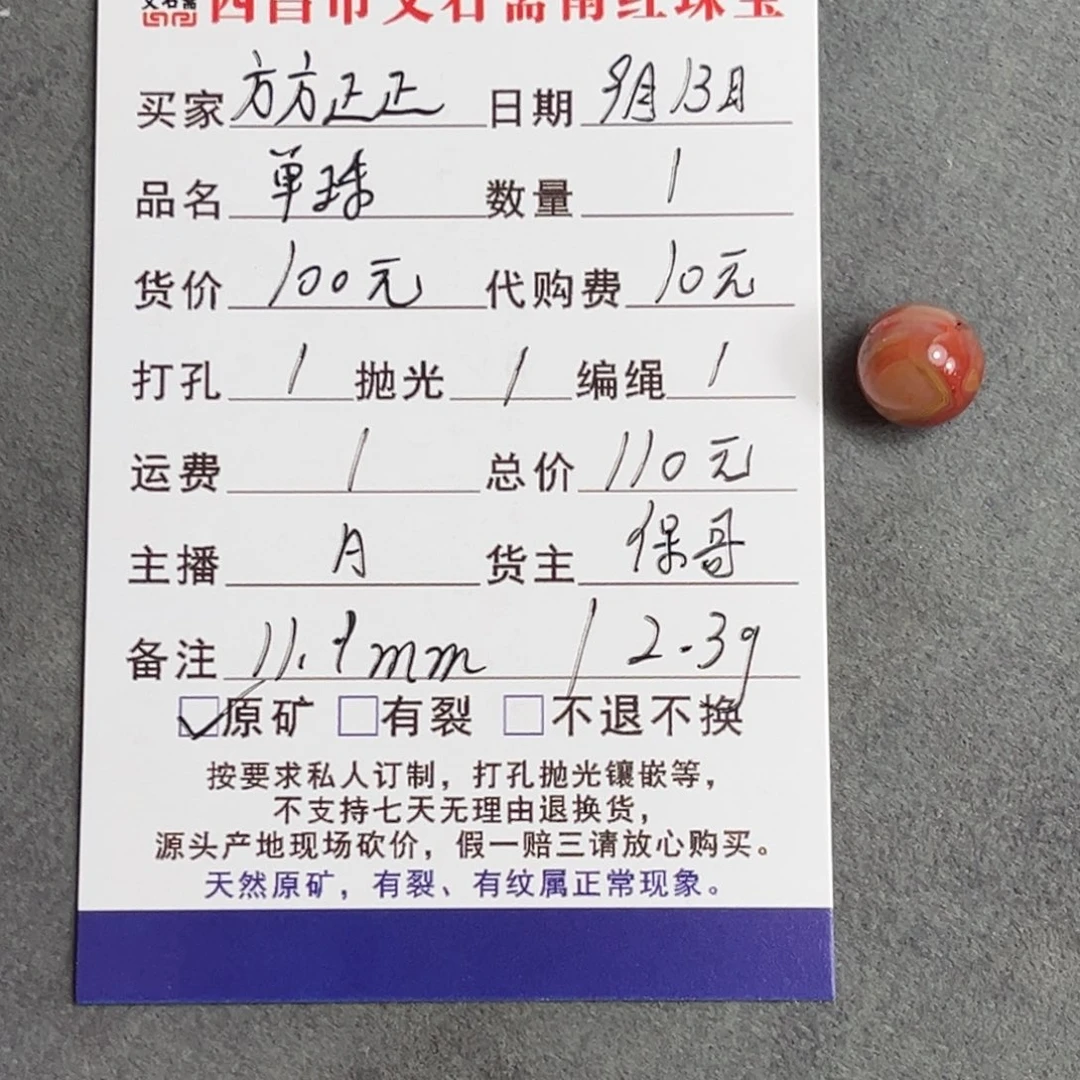 文石斋 西昌市文石斋南红珠宝
买家 方方正正 日期 9月13日
品名 单珠 数量 1
货价 100元 代购费 10元
打孔 / 抛光 / 编绳 /
运费 / 总价 110元
主播 A 货主 保哥
备注 11.9mm / 2.3g
原矿 有裂 不退不换
按要求私人订制，打孔抛光镶嵌等，
不支持七天无理由退换货，
源头产地现场砍价，假一赔三请放心购买。
天然原矿，有裂、有纹属正常现象。